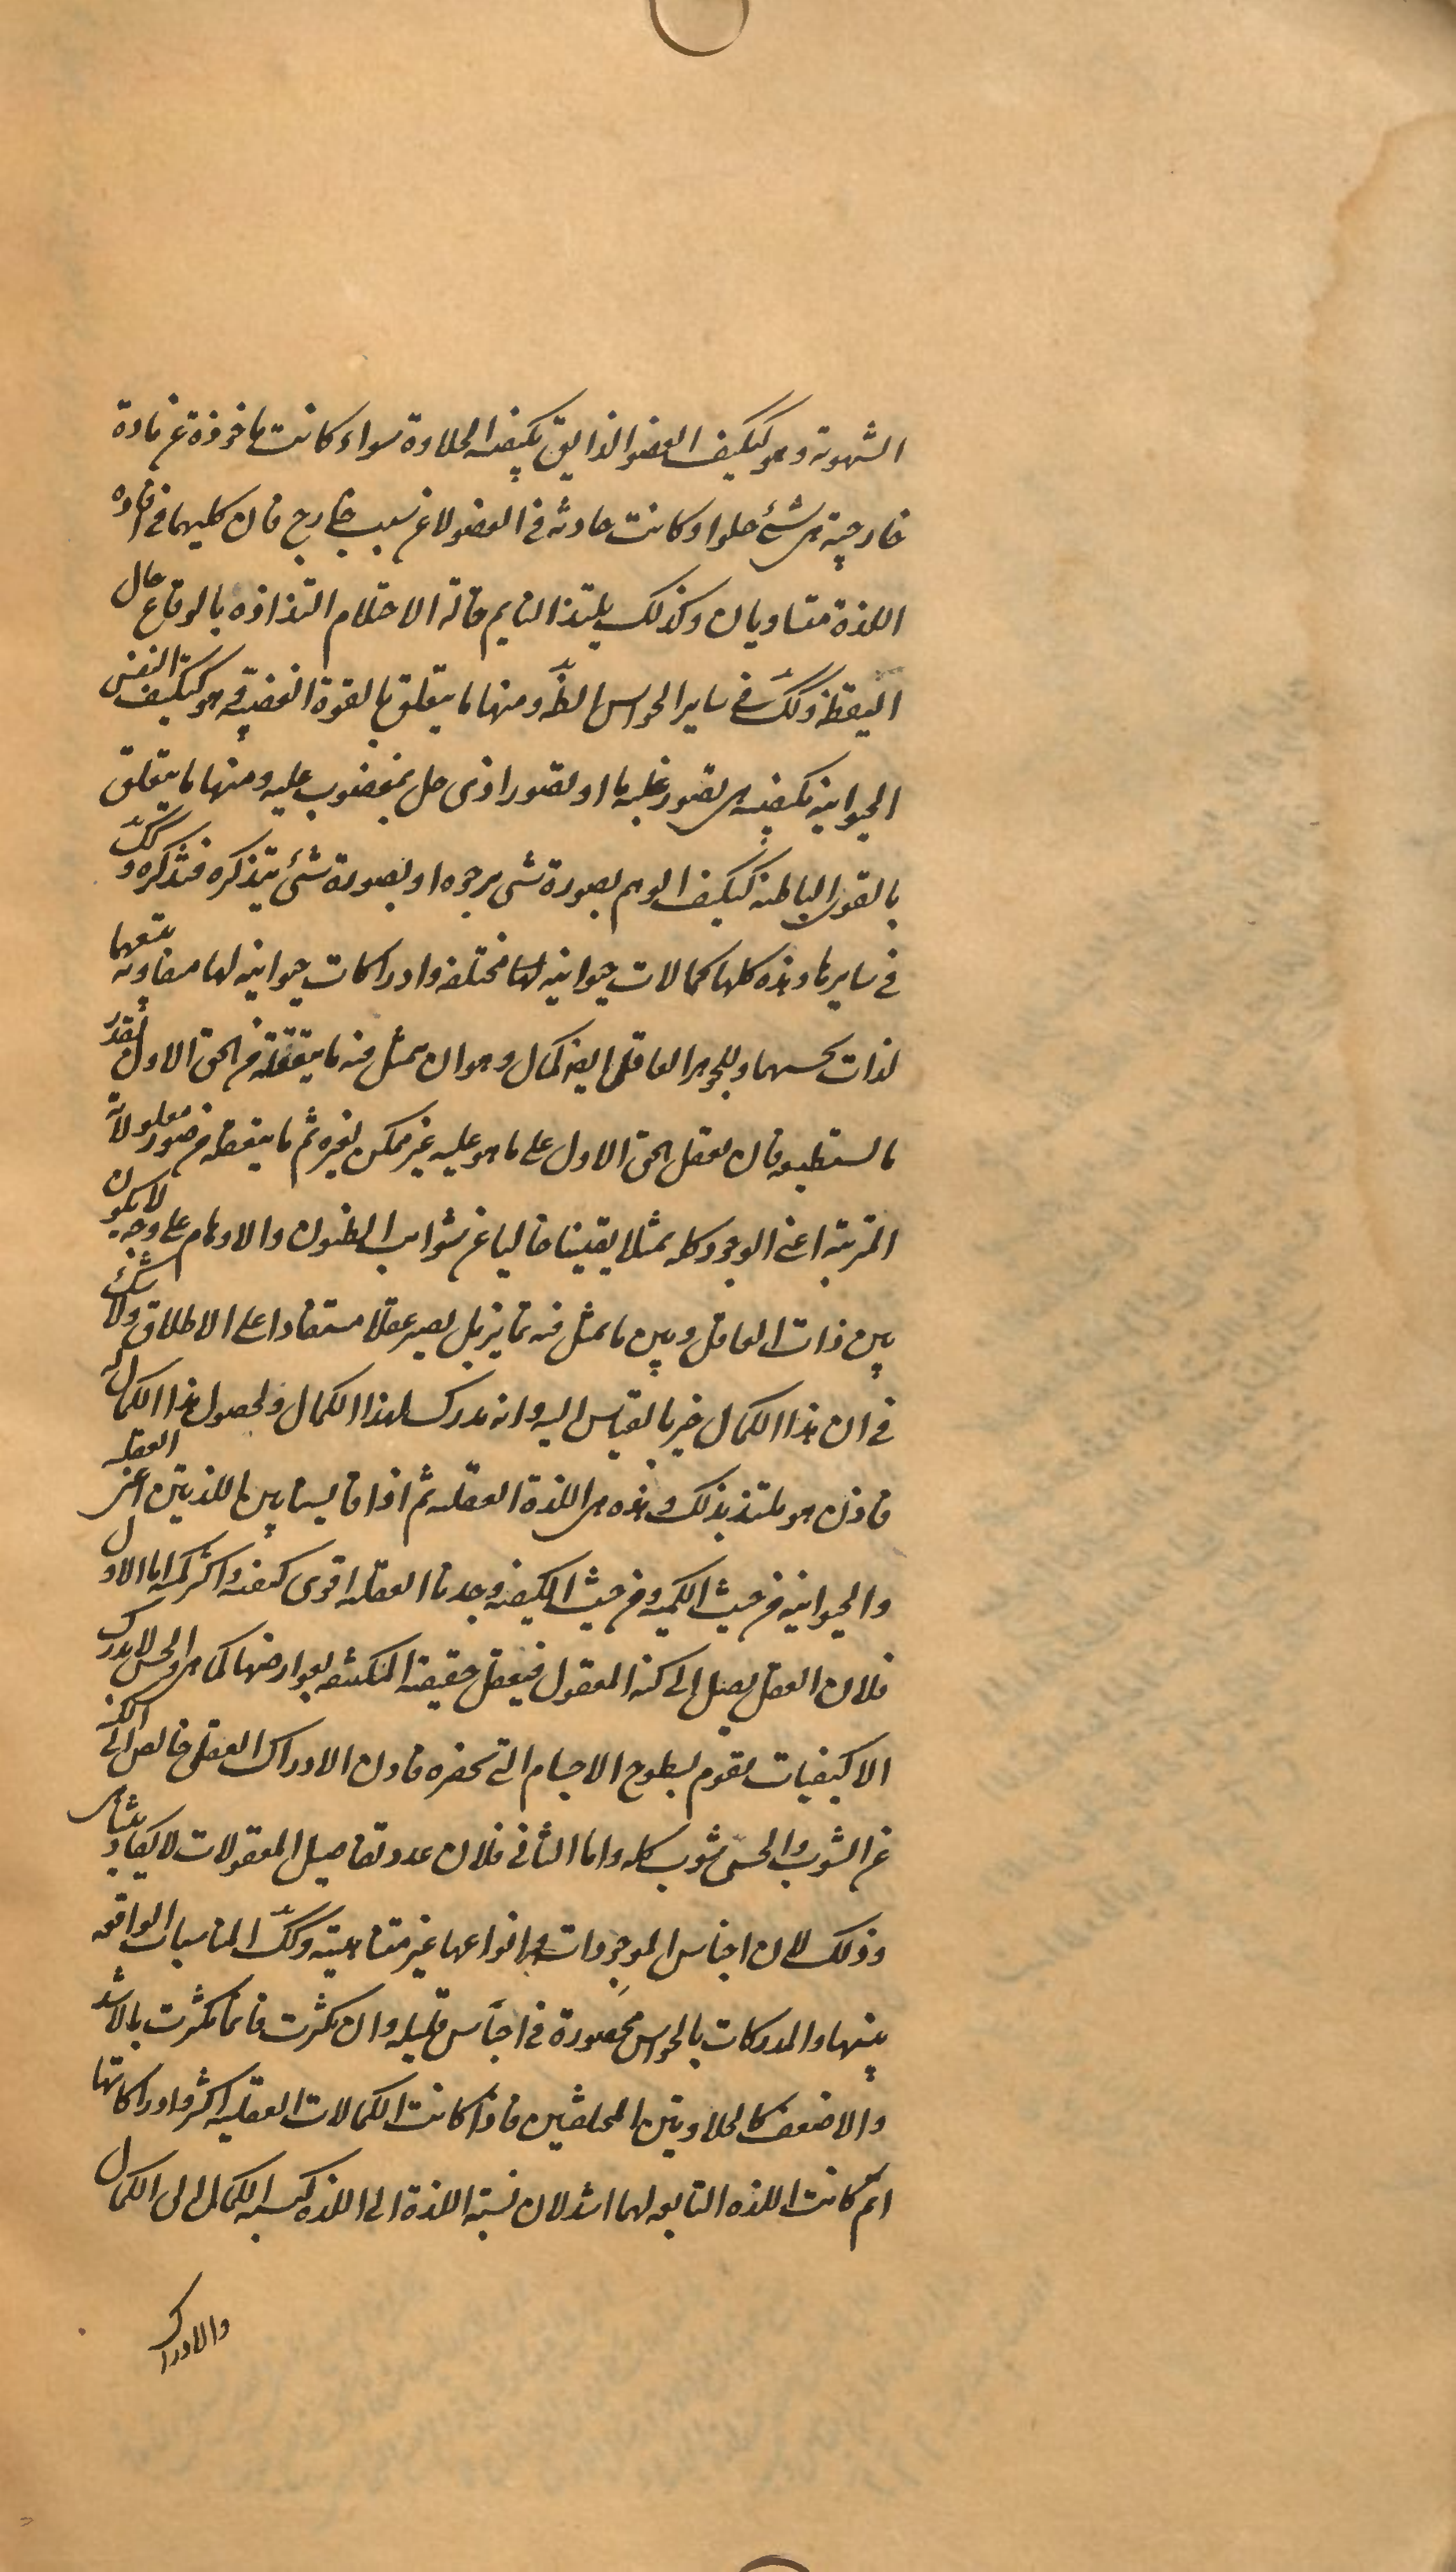 الشهوية وهو كتكيف العضو الذايق بكيفية الحلاوة سواء كانت ماخوذة عن مادة
خارجية هى شئ حلو او كانت حادثه فى العضو لا عن سبب خارج فان كليهما فى افاده
اللذة متساويان وكذلك يلتذ النايم حالة الاحتلام التذاذه بالوقاع حال
اليقظة وكك فى ساير الحواس الظه ومنها ما يتعلق بالقوة الغضبية وهو كتكيف النفس
الحيوانية بكيفيه هى تصور غلبه ما او تصور اذى حل بمغضوب عليه ومنها ما يتعلق
بالقوى الباطنه كتكيف الوهم بصورة شى يرجوه او بصورة شئ يتذكره فتذكره وكك
فى سايرها وهذه كلها كمالات حيوانيه لها مختلفه وادراكات حيوانيه لها متفاوته يتبعها
لذات بحسبهما وللجوهر العاقل ايضا كمال وهو ان يتمثل فيه ما يتعقله من الحق الاول بقدر
ما يستطيعه فان تعقل الحق الاول على ما هو عليه غير ممكن لغيره ثم ما يتعقله من صور معلولاته
المترتبة اعنى الوجود كله تمثلا يقينيا خاليا عن شوايب الظنون والاوهام على وجه لا يكون
بين ذات العاقل وبين ما تمثل فيه تمايز بل يصير عقلا مستفادا على الاطلاق ولا شك
فى ان هذا الكمال خير بالقياس اليه وانه مدرك لهذا الكمال ولحصول هذا الكمال له
فاذن هو ملتذ بذلك وهذه هى اللذة العقليه ثم اذا قايسنا بين اللذتين اعنى العقليه
والحيوانيه من حيث الكميه ومن حيث الكيفيه وجدنا العقليه اقوى كيفيه واكثر كميه اما الاول
فلان العقل يصل الى كنه المعقول فيعقل حقيقته المكتنفه بعوارضها كما هى والحس لا يدرك
الا كيفيات تقوم بسطوح الاجسام التى تحضره فاذن الادراك العقلى خالص الى الكنه
عن الشوب والحسى شوب كله واما الثانى فلان عدد تفاصيل المعقولات لا يكاد يتناهى
وذلك لان اجناس الموجودات وانواعها غير متناهيته وكك المناسبات الواقعه
بينها والمدركات بالحواس محصورة فى اجناس قليله وان تكثرت فانما تكثرت بالاشد
والاضعف كالحلاوتين المختلفتين فاذا كانت الكمالات العقليه اكثر وادراكاتها
اتم كانت اللذه التابعه لهما اشد لان نسبة اللذة الى اللذه كنسبه الكمال الى الكمال
والادراك